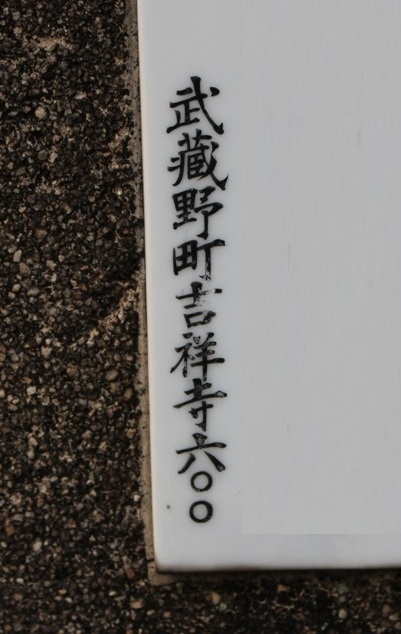 武蔵野町吉祥寺六〇〇